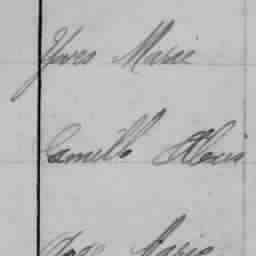 Yves Marie
Camille Alexis
Marie